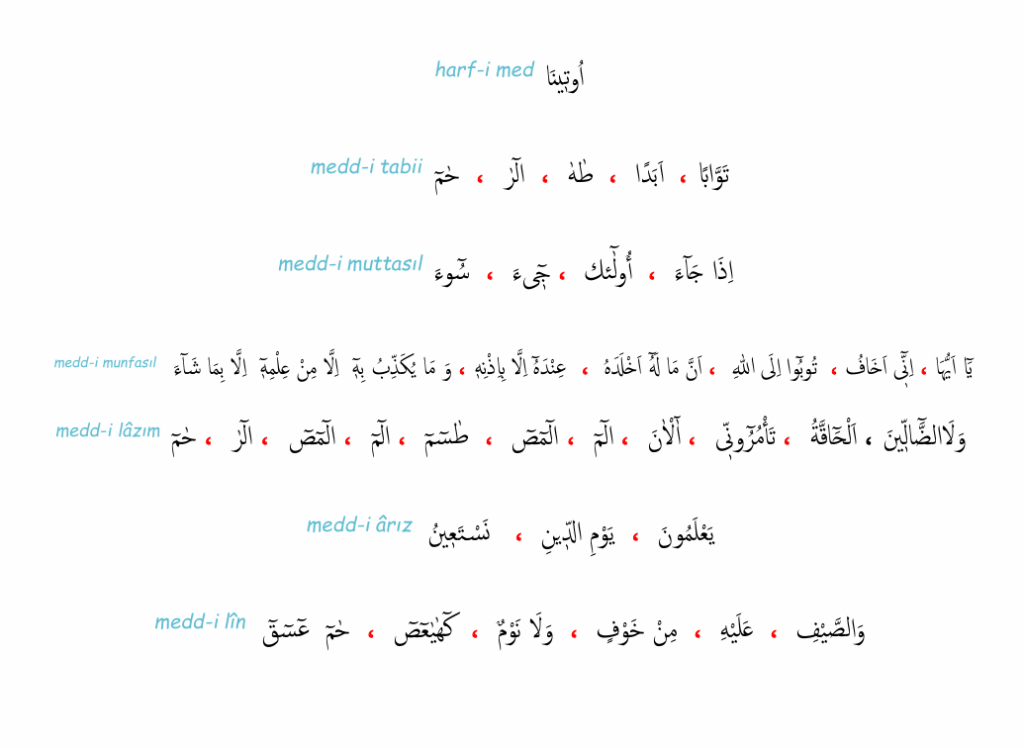 harf-i med اُوتٖينَا
medd-i tabii تَوَّابًا ، اَبَدًا ، طٰهٰ ، الٓرٰ ، حٰمٓ
medd-i muttasıl اِذَا جَٓاءَ ، اُو۬لٰٓئك ، جٖٓىءَ ، سُٓوءَ
medd-i munfasıl يَٓا اَيُّهَا ، اِنّٖٓى اَخَافُ ، تُوبُٓوا اِلَى اللهِ ، اَنَّ مَا لَهُٓ اَخْلَدَهُ ، عِنْدَهُٓ اِلَّا بِاِذْنِهٖ ، وَ مَا يُكَذِّبُ بِهٖٓ اِلَّا مِنْ عِلْمِهٖٓ اِلَّا بِمَا شَٓاءَ
medd-i lâzım وَلَاالضَّٓالّٖينَ ، اَلْحَٓاقَّةُ ، تَاْمُرُٓونّٖى ، آٰلْاٰنَ ، الٓمٓ ، الٓمٓصٓ ، طٰسٓمٓ ، الٓمٓ ، الٓمٓصٓ ، الٓرٰ ، حٰمٓ
medd-i ârız يَعْلَمُونَ ، يَوْمِ الدّٖينِ ، نَسْتَعٖينُ
medd-i lîn وَالصَّيْفِ ، عَلَيْهِ ، مِنْ خَوْفٍ ، وَلَا نَوْمٌ ، كٓهٰيٰعٓصٓ ، حٰمٓ عٓسٓقٓ